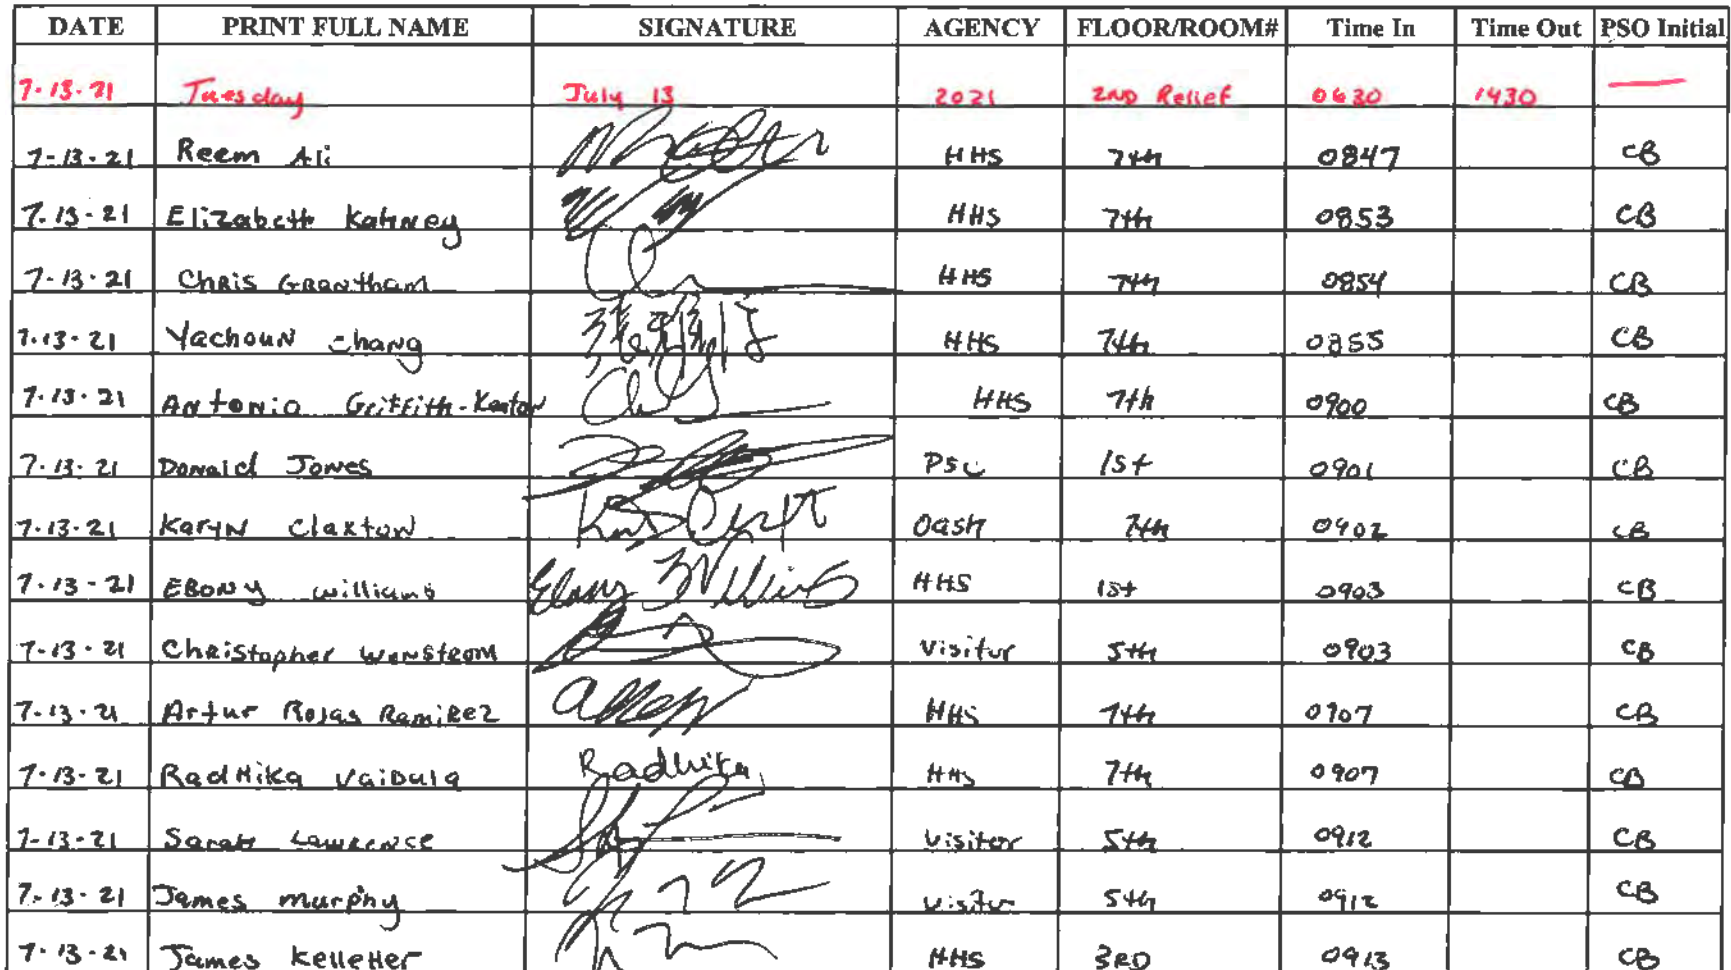 DATE PRINT FULL NAME SIGNATURE AGENCY FLOOR/ROOM# Time In Time Out PSO Initial
7-13-21 Tuesday July 13 2021 2ND Relief 0630 1430
7-13-21 Reem Ali HHS 7th 0847 CB
7-13-21 Elizabeth Kahney HHS 7th 0853 CB
7-13-21 Chris Grantham HHS 7th 0854 CB
7-13-21 Yachoun Chang HHS 7th 0855 CB
7-13-21 Antonia Griffith-Keaton HHS 7th 0900 CB
7-13-21 Donald Jones PSC 1st 0901 CB
7-13-21 Karyn Claxton Oash 7th 0902 CB
7-13-21 Ebony Williams Ebony Williams HHS 1st 0903 CB
7-13-21 Christopher Wenstrom Visitor 5th 0903 CB
7-13-21 Artur Rojas Ramirez HHS 7th 0907 CB
7-13-21 Radhika Vaidula Radhika HHS 7th 0907 CB
7-13-21 Sarah Lawrence Visitor 5th 0912 CB
7-13-21 James Murphy Visitor 5th 0912 CB
7-13-21 James Kelleher HHS 3RD 0913 CB